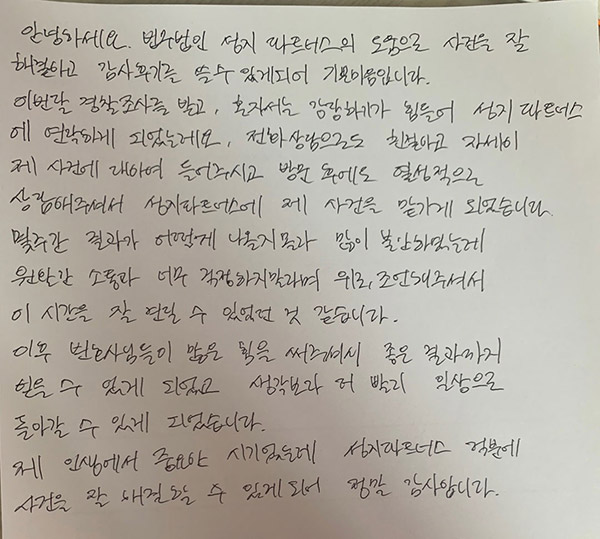 안녕하세요. 법무법인 성지 파트너스의 도움으로 사건을 잘
해결하고 감사후기를 쓸 수 있게되어 기쁜마음입니다.
이번달 경찰조사를 받고, 혼자서는 감당하기가 힘들어 성지 파트너스
에 연락하게 되었는데요, 전화상담으로도 친절하고 자세히
제 사건에 대하여 들어주시고 방문 후에도 열성적으로
상담해주셔서 성지파트너스에 제 사건을 맡기게 되었습니다.
몇주간 결과가 어떻게 나올지몰라 많이 불안하였는데
원활한 소통과 너무 걱정하지말라며 위로, 조언해주셔서
이 시간을 잘 견딜 수 있었던 것 같습니다.
이후 변호사님들이 많은 힘을 써주셔서 좋은 결과까지
얻을 수 있게 되었고 생각보다 더 빨리 일상으로
돌아갈 수 있게 되었습니다.
제 인생에서 중요한 시기였는데 성지파트너스 덕분에
사건을 잘 해결할 수 있게되어 정말 감사합니다.